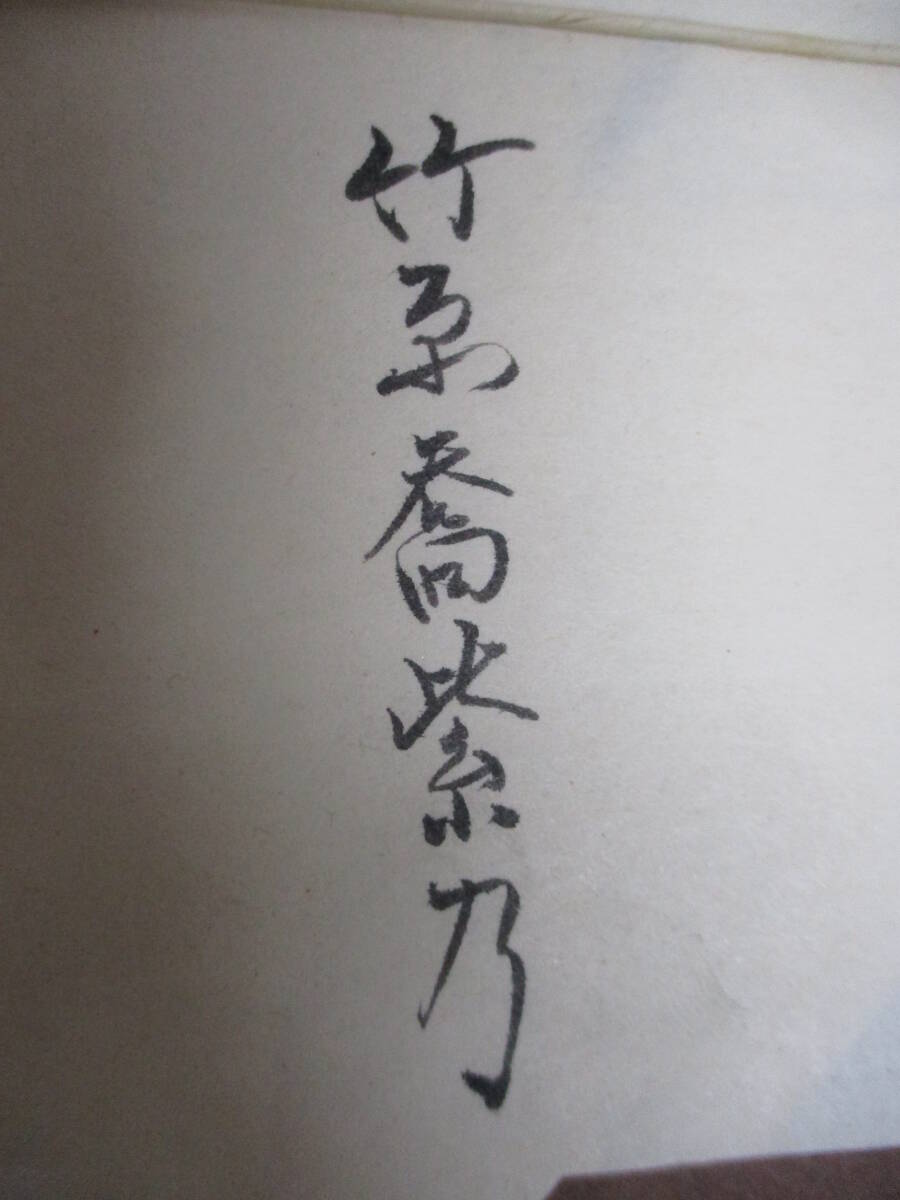 竹原喬紫乃